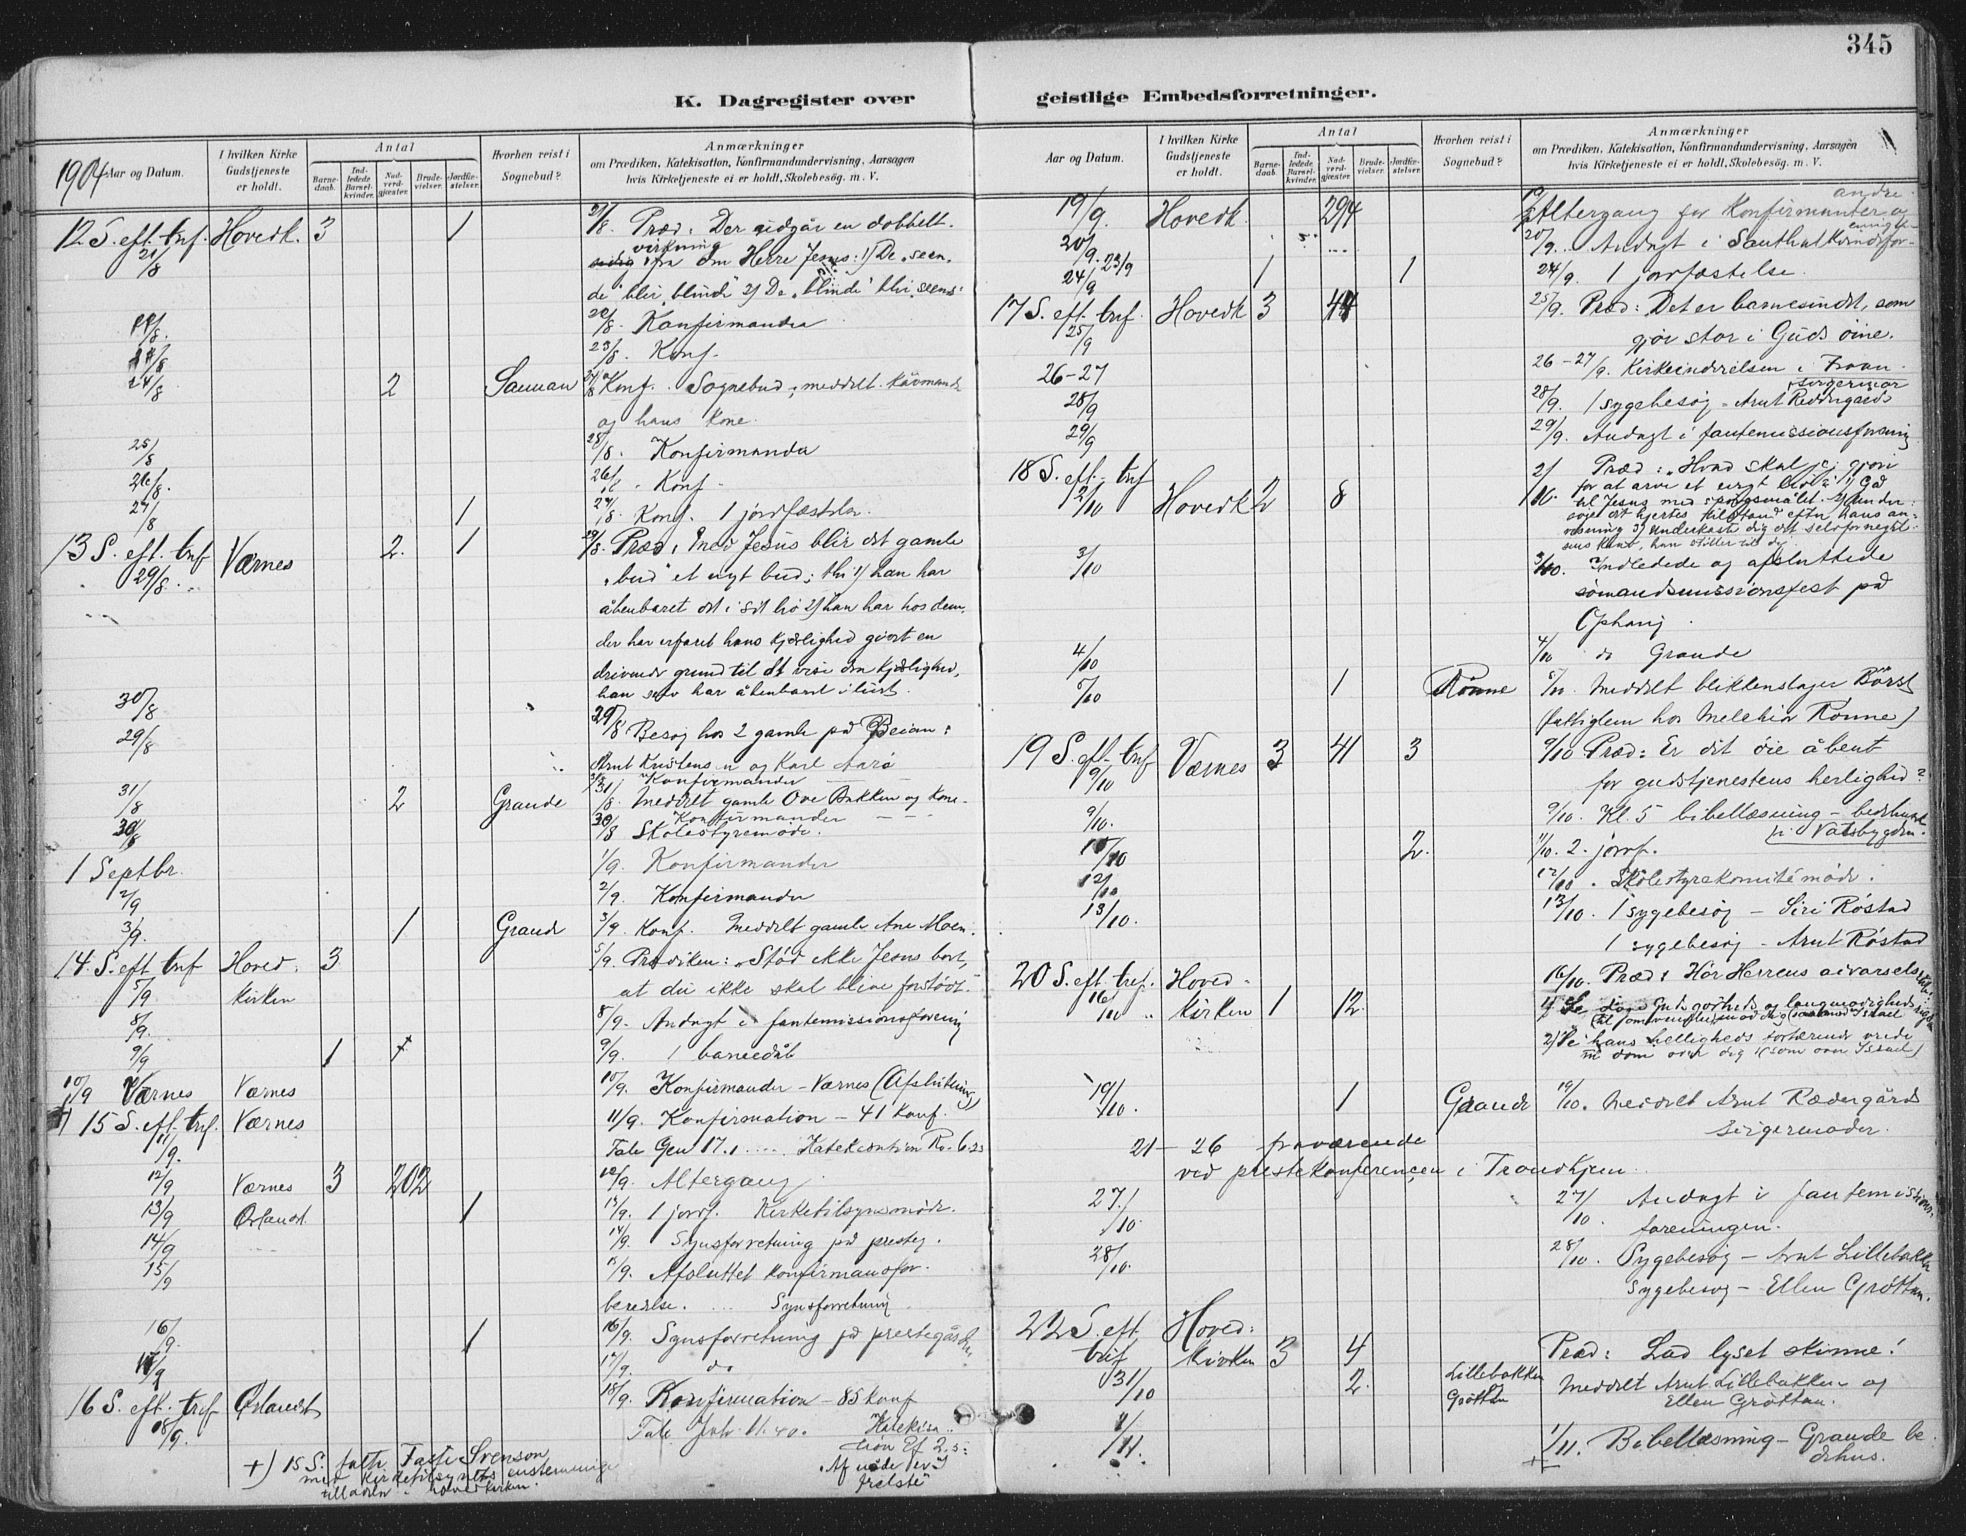 345
K. Dagregister over geistlige Embedsforretninger.
1904 Aar og Datum.
I hvilken Kirke Gudstjeneste er holdt.
Antal
Barnedaab.
Indledede Barselkvinder.
Nadverdgjæster
Brudevielser.
Jordfæstelser.
Hvorhen reist i Sognebud?
Anmærkninger
om Prædiken, Katekisation, Konfirmandundervisning, Aarsagen
hvis Kirketjeneste ei er holdt, Skolebesög. m. V.
12 S. eft. trf. Hovedk. 3 1 21/8. Præd: Der udgår en dobbelt
21/8 virkning fra om Herre Jesus: 1) De "seende" blir blinde 2) De "blinde" bli seende
22/8. Konfirmander
23/8. Konf.
24/8 2 24/8 Konf. Sognebud; meddelt
og hans kone.
25/8 25/8. Konfirmander
26/8. 26/8. Konf.
27/8 1 27/8. Konf. 1 jordfæstelse
13 S. eft. trf Værnes 2. 1 Præd: Med Jesus blir det gamle
"bud" et nyt bud; thi 1) han har
åbenbaret det i sit liv 2) han har hos dem,
der har erfaret hans kjærlighed gjort en
drivende grund til at vise den kjærlighed,
han selv har åbenbaret
30/8
29/8 29/8. Besøg hos 2 gamle på Beian:
Konfirmander
31/8 2 Grande 31/8. Meddelt gamle Ove Bakken og kone
30/8 Konfirmander
30/8 Skolestyremøde.
1 Septbr. 1/9. Konfirmander
2/9 2/9. Konfirmander
3/9. 1 Grande 3/9. Konf. Meddelt gamle Ane Moen.
14. S. eft trf Hoved- 3 5/9. Prædiken: "Stød ikke Jesus bort,
5/9 kirken at du ikke skal blive forstødt"
8/9. 8/9. Andagt i fantemissionsforening
9/9 1 + 9/9. 1 barnedåb
10/9 Værnes Værnes 10/9. Konfirmander - Værnes (Afslutning)
15 S. eft. trf. Værnes 11/9. Konfirmation - 41 konf.
11/9. Tale Gen 17.1 ..... Katekisation Ro. 6.23
12/9 Værnes 3 202 12/9. Altergang
13/9 Ørlandet 1 13/9. 1 jordf. Kirketilsynsmøde.
14/9 14/9. Synsforretning på presteg.
15/9 15/9. Afsluttet konfirmandforberedelse. ... Synsforretning
16/9. 1 16/9. Synsforretning på prestegården
17/9 17/9. do
16 S. eft. trf Ørlandet 18/9. Konfirmation - 85 konf
18/9. Tale Joh. 11.40. Katekisation Ef 2.5:
"Af nåde er I frelste"
+) 15 S. Svenson
med kirketilsynets enstemmige
tilladelse hovedkirken.
Aar og Datum.
I hvilken Kirke Gudstjeneste er holdt.
Antal
Barnedaab.
Indledede Barselkvinder.
Nadverdgjæster
Brudevielser.
Jordfæstelser.
Hvorhen reist i Sognebud?
Anmærkninger
om Prædiken, Katekisation, Konfirmandundervisning, Aarsagen
hvis Kirketjeneste ei er holdt, Skolebesög. m. V.
19/9. Hovedk. 294 Altergang for Konfirmanter og andre
20/9. 20/9. Andagt i
24/9 23/9 1 1 24/9. 1 jordfæstelse.
17 S. eft. trf. Hovedk 3 44 25/9. Præd: Det er barnesindet, som
25/9 gjør stor i Guds øine.
26-27 26-27/9. Kirkeindvielsen i
28/9 28/9. 1 sygebesøg - Arnt
29/9 29/9. Andagt i fantemissionsforening
18 S. eft. trf Hovedk 2 8 2/10. Præd: "Hvad skal jeg gjøre
2/10 for at arve et evigt liv": 1) Gå
til Jesus med spørgsmålet 2) Undersøge
dit hjertes tilstand efter hans anvisning
3) Underkaste dig det
3/10 3/10. Indledede og afsluttede
sømandsmissionsfest på
Ophaug.
4/10 4/10 do Grande
5/10 1 Rønne Meddelt blikkenslager Børst
(fattiglem hos Melchior Rønne)
19 S. eft. trf Værnes 3 41 3 9/10 Præd: Er dit øie åbent
9/10 for gudstjenestens herlighed?
9/10. 9/10. Kl. 5 bibellæsning - bedehuset
i Vatsbygden.
2. 11/10. 2. jordf.
12/10 12/10. Skolestyrekomitémøde.
13/10. 13/10. 1 sygebesøg - Siri Røstad
1 sygebesøg - Arnt Røstad
20 S. eft. tref. Hoved- 1 12 16/10. Præd: Hør Herrens advarsels
16/10 kirken
2) Se hans helligheds fortærende vrede
dom over dig (som over Israel)
19/10. 1 Grande 19/10. Meddelt Arnt
21 - 26 fraværende
ved prestekonferencen i Trondhjem.
27/10. 27/10. Andagt i fantemissionsforeningen.
28/10. 28/10. Sygebesøg - Arnt Lillebakken
Sygebesøg - Ellen Grøttan.
22 S. eft. Hoved-
trif kirken 3 4 Præd: Lad lyset skinne!
31/10 2. Lillebakken Grøttan Meddelt Arnt Lillebakken og
Ellen Grøttan.
1/11. 1/11. Bibellæsning - Grande bedehus.